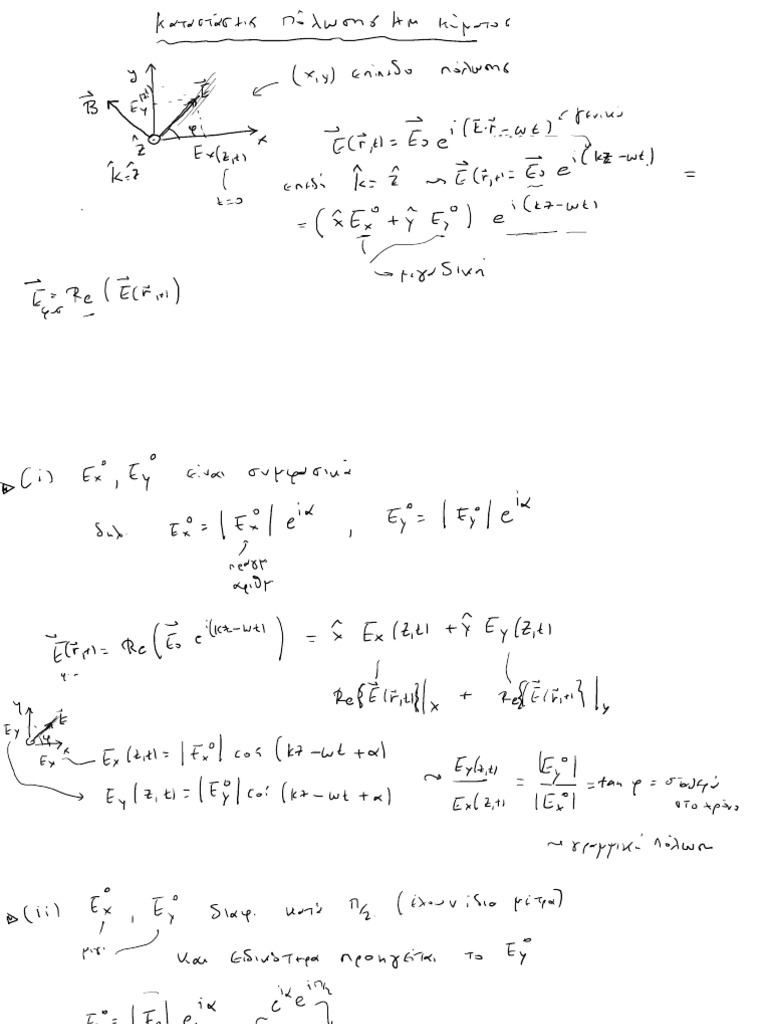 Καταστάσεις Πόλωσης ΗΜ κύματος
(x,y) επίπεδο πόλωσης
y
B⃗
E_y(z,t)
E⃗
φ
x
ẑ
E_x(z,t)
k̂=ẑ
t=0
E⃗(r⃗,t) = E⃗₀ e^{i(k⃗·r⃗-ωt)} γενικό
επειδή k̂ = ẑ ⤳ E⃗(r⃗,t) = E⃗₀ e^{i(kz-ωt)} =
= (x̂ E_x⁰ + ŷ E_y⁰) e^{i(kz-ωt)}
→ μιγαδική
E⃗_{φυσ} = Re (E⃗(r⃗,t))
(i) E_x⁰, E_y⁰ είναι συμφασικά
δηλ. E_x⁰ = |E_x⁰| e^{iα} , E_y⁰ = |E_y⁰| e^{iα}
πραγμ
αριθμ
E⃗(r⃗,t) = Re (E⃗₀ e^{i(kz-ωt)}) = x̂ E_x(z,t) + ŷ E_y(z,t)
Re{E⃗(r⃗,t)}|_x + Re{E⃗(r⃗,t)}|_y
y
E_y
E⃗
φ
x
E_x
E_x(z,t) = |E_x⁰| cos (kz-ωt+α)
E_y(z,t) = |E_y⁰| cos (kz-ωt+α)
⤳ E_y(z,t)/E_x(z,t) = |E_y⁰|/|E_x⁰| = tan φ = σταθερό
στο χρόνο
⤳ γραμμική πόλωση
(ii) E_x⁰, E_y⁰ διαφ. κατά π/2 (έχουν ίδιο μέτρο)
μιγ.
και ειδικότερα προηγείται το E_y⁰
e^{iα} e^{iπ/2}